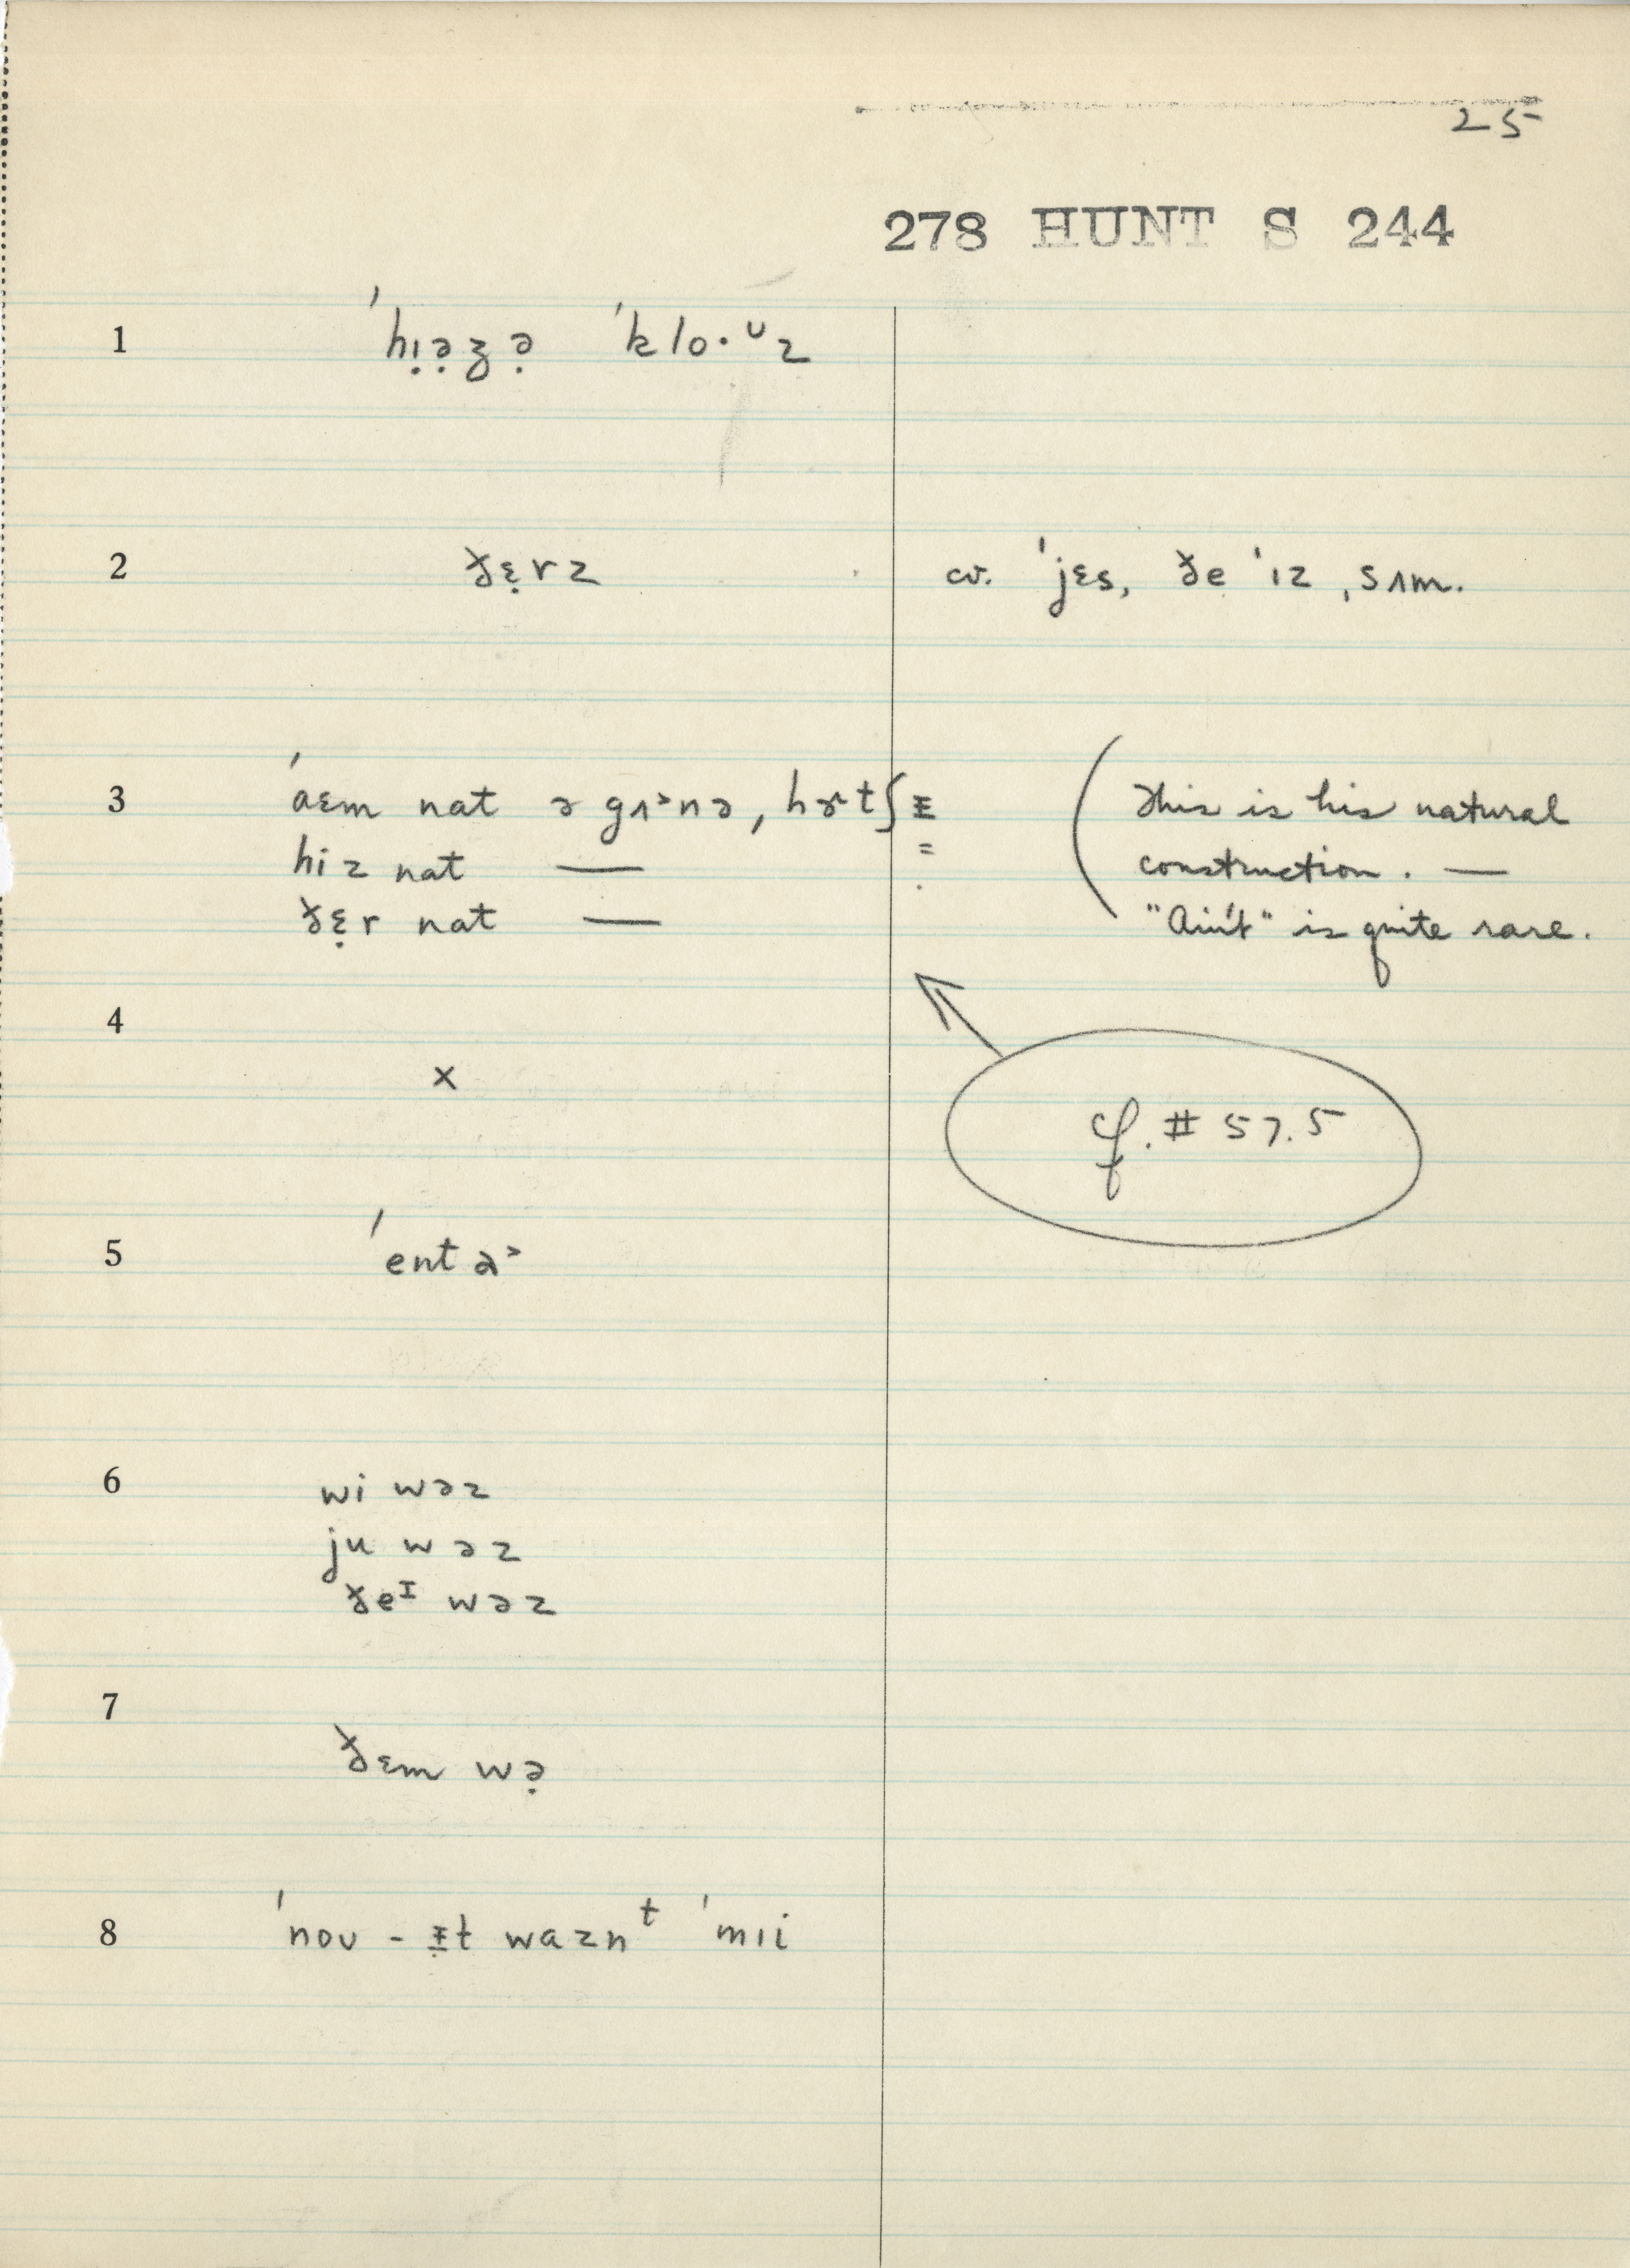 25
278 HUNT S 244
1 ˈhɪ̣ə̣zə̣ ˈklo·ᶷz
2 ðɛ̣rz cv. ˈjɛs, ðe ˈɪz ˌsʌm.
3 ˈaɛm nat ə gʌ˃nə ˌhɚtʃɪ̵ (This is his natural
hiz nat — construction. —
ðɛ̣r nat — "Ain't" is quite rare.
4
x
cf. # 57.5
5 ˈentə˃
6 wi wəz
ju wəz
ðeᴵ wəz
7
ðɛm wə̣
8 ˈnoʊ - ɪ̵t waznᵗ ˈmɪi